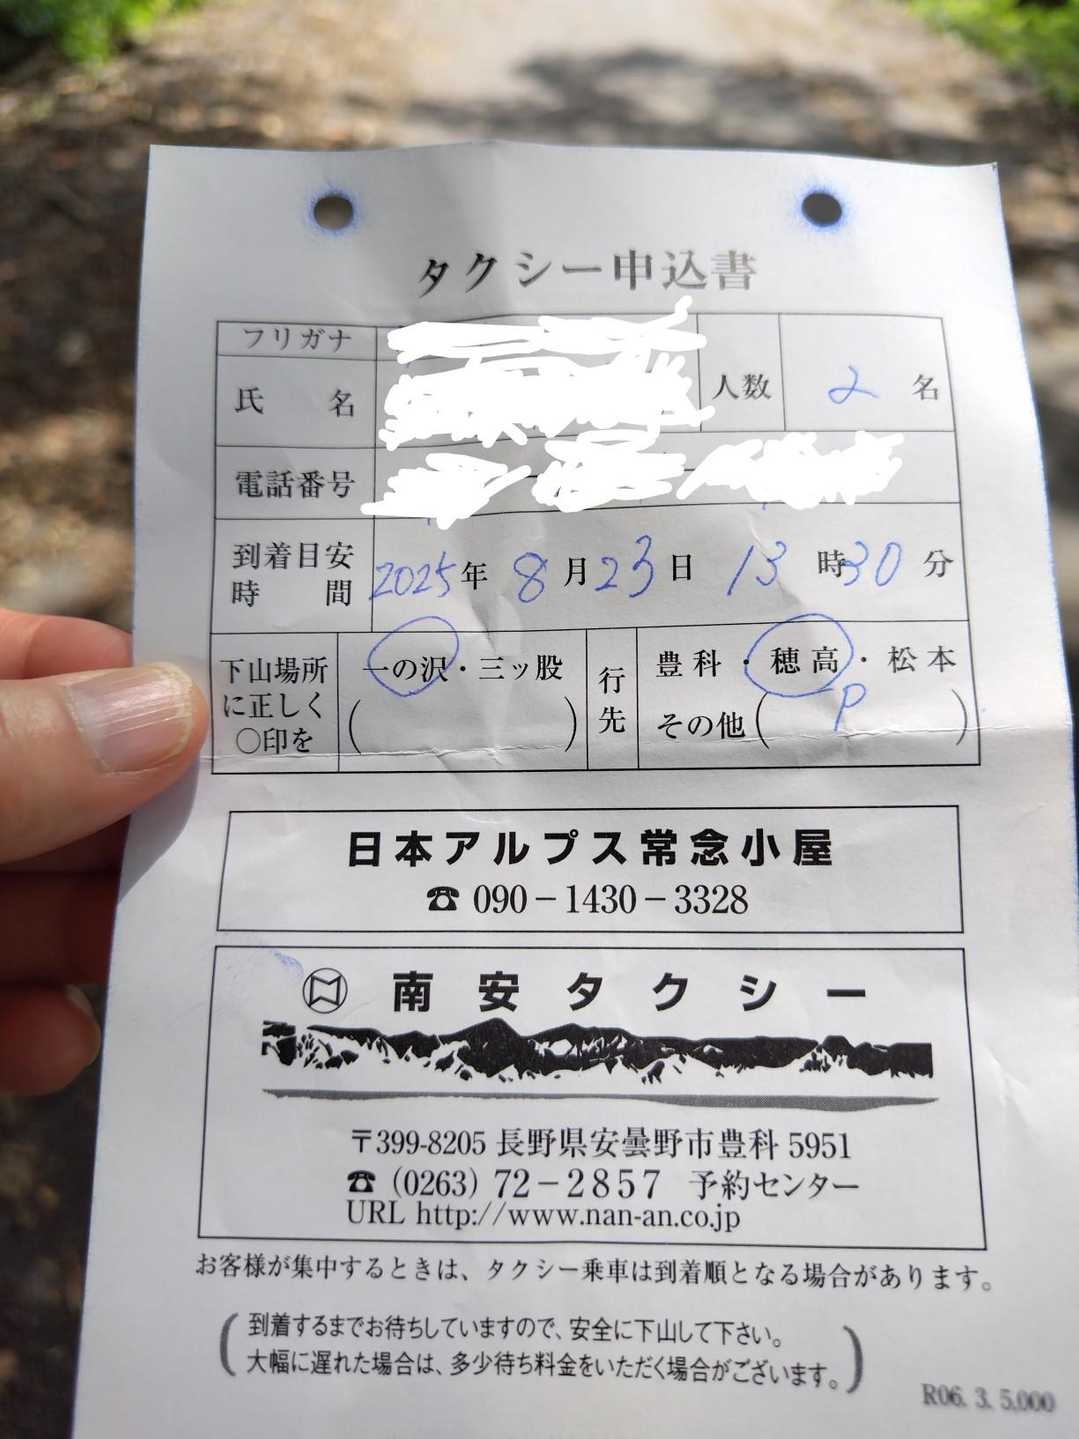 タクシー申込書
フリガナ
氏名 人数 2名
電話番号
到着目安時間 2025年 8月23日 13時30分
下山場所に正しく○印を 一の沢・三ッ股 ( ) 行先 豊科・穂高・松本 その他( P )
日本アルプス常念小屋
☎ 090-1430-3328
南安タクシー
〒399-8205 長野県安曇野市豊科5951
☎ (0263) 72-2857 予約センター
URL http://www.nan-an.co.jp
お客様が集中するときは、タクシー乗車は到着順となる場合があります。
(到着するまでお待ちしていますので、安全に下山して下さい。
大幅に遅れた場合は、多少待ち料金をいただく場合がございます。)
R06. 3. 5,000